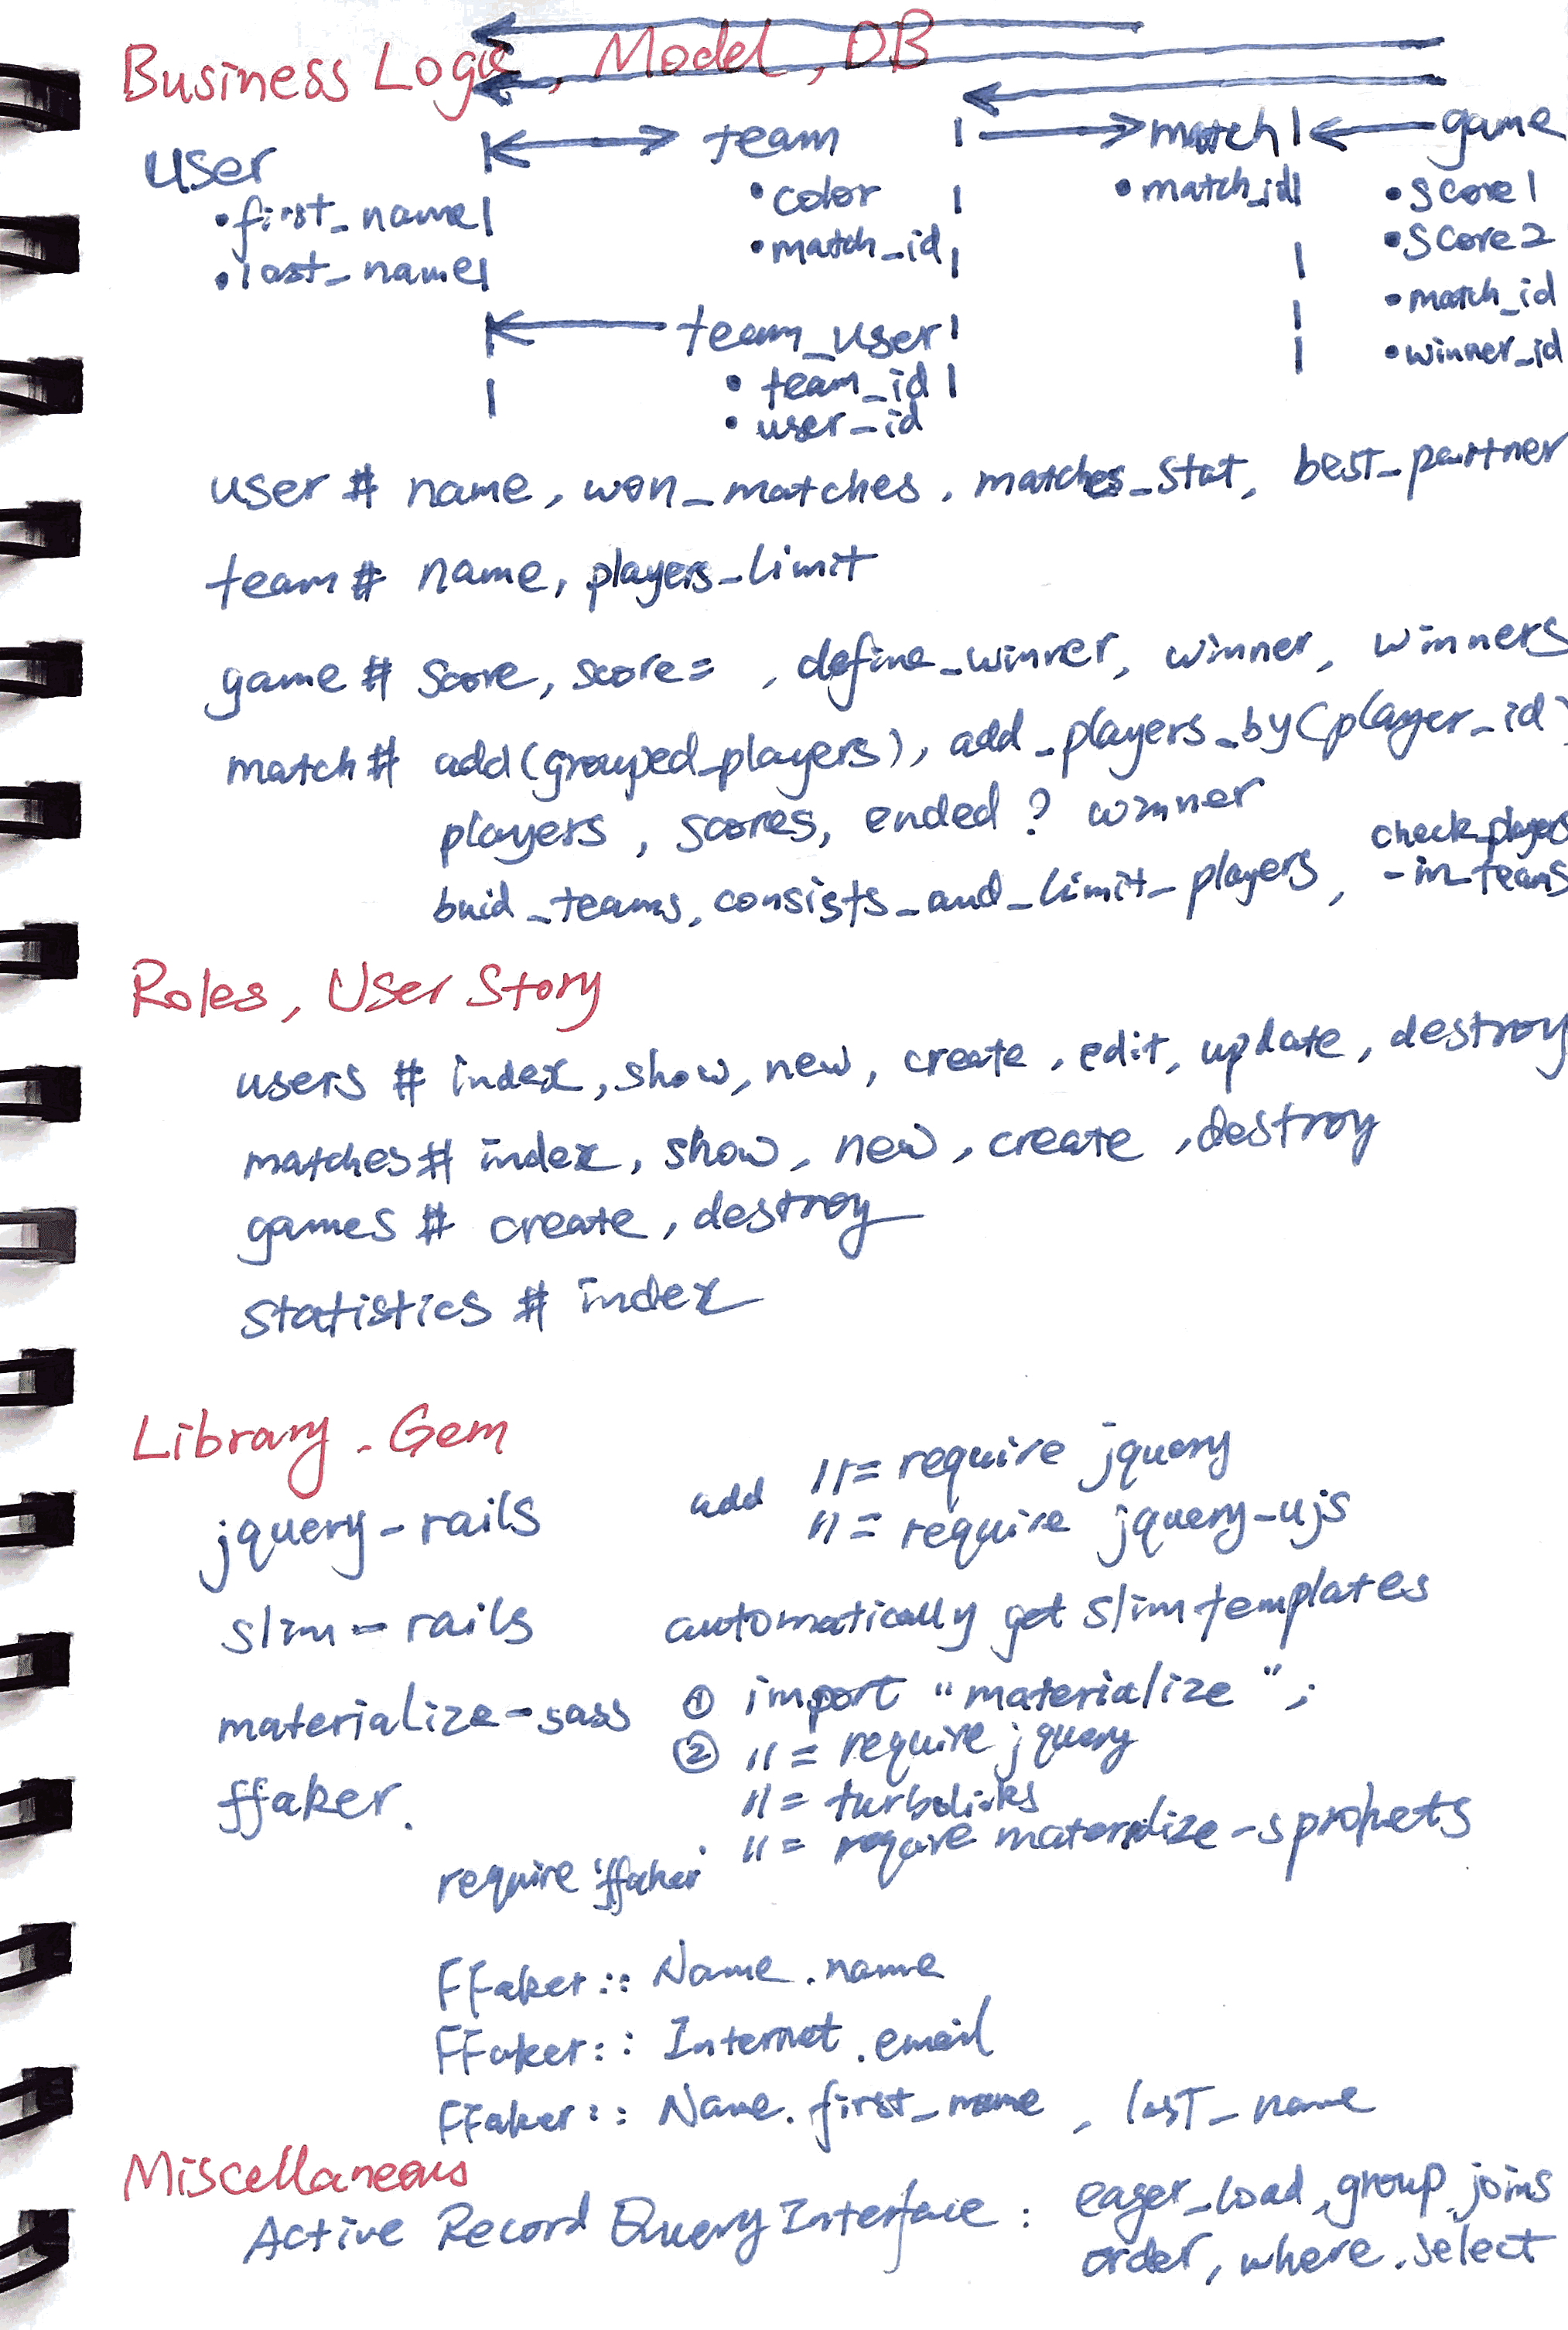 Business Logic, Model, DB
user team match game
• first_name • color • match_id • score1
• last_name • match_id • score2
• match_id
team_user • winner_id
• team_id
• user_id
user # name, won_matches, matches_stat, best_partner
team # name, players_limit
game # score, score= , define_winner, winner, winners
match # add(grouped_players), add_players_by(player_id)
players, scores, ended? winner
buid_teams, consists_and_limit_players, check_players
-in_teams
Roles, User Story
users # index, show, new, create, edit, update, destroy
matches # index, show, new, create, destroy
games # create, destroy
statistics # index
Library - Gem
jquery-rails add //= require jquery
//= require jquery-ujs
slim-rails automatically get slim templates
materialize-sass ① import "materialize";
② //= require jquery
ffaker. //= turbolinks
//= require materialize-sprokets
require 'ffaker'
FFaker:: Name.name
FFaker:: Internet.email
FFaker:: Name.first_name, last_name
Miscellaneous
Active Record Query Interface: eager_load, group, joins
order, where, select